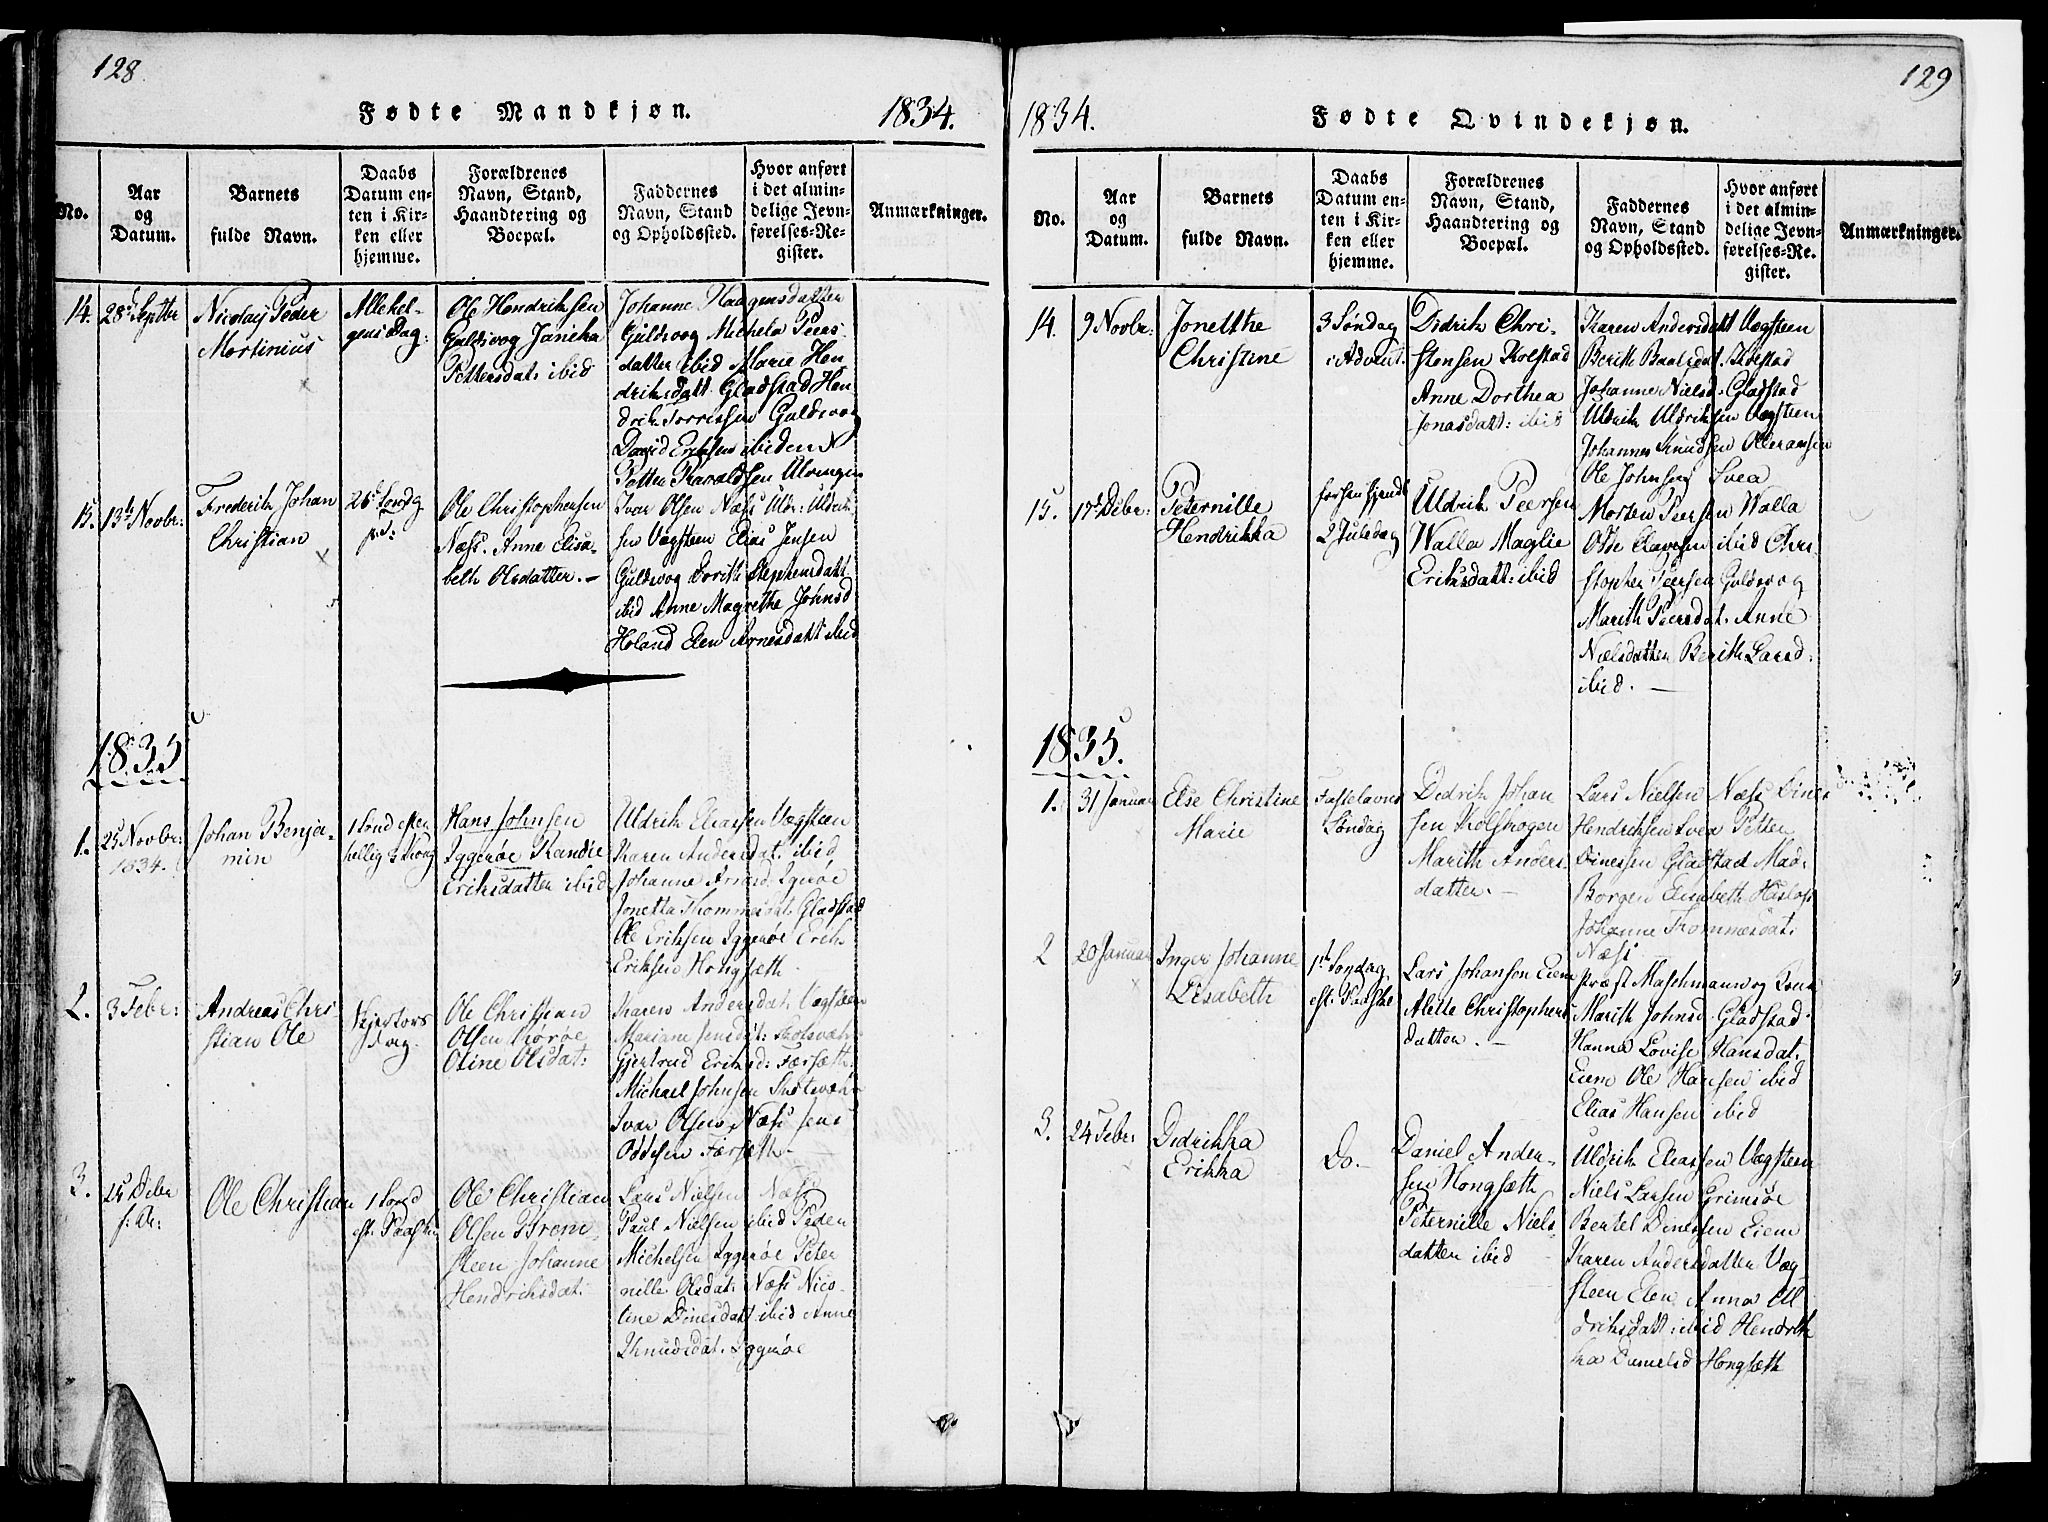 128
Fødte Mandkjøn.
1834.
No.
Aar
og
Datum.
Barnets
fulde Navn.
Daabs
Datum en-
ten i Kir-
ken eller
hjemme.
Forældrenes
Navn, Stand,
Haandtering og
Boepæl.
Faddernes
Navn, Stand
og Opholdssted.
Hvor anført
i det almin-
delige Jevn-
førelses-Re-
gister.
Anmærkninger.
14.
28de Septbr
Nicolay Peder
Martinius
Allehel-
gens Dag.
Ole Hendriksen
Guldvog Janicka
Pettersdat: ibid
Johanne Haagensdatter
Guldvog Michela Peers
datter ibid Marie Hen
driksdatt. Gladstad Hen
drik Torrissen Guldvog
David Eriksen ibiden
Petter Haraldsen Ulvingen
15.
13de Novbr:
Frederik Johan
Christian
26de Søndg
Ole Christophersen
Næss. Anne Elisa-
beth Olsdatter. —
Ivar Olsen Næss Uldr: Uldrik-
sen Vægsteen Elias Jensen
Guldvog Dorith Stephensdatt
ibid Anne Magrethe Johnsd
Holand Elen Arnesdatt ibid
1835
1.
25 Novbr:
1834.
Johan Benja-
min
1 Sønd efter
hellig 3 Kong
Hans Johnsen
Iggerøe Randie
Eriksdatter ibid
Uldrik Eliassen Vægsteen
Karen Andersdat. ibid
Johanne Igerøe
Jonetta Thommesdat. Gladstad
Ole Eriksen Iggerøe Erik
Eriksen Hongsæth
2.
3 Febr:
Andreas Chri
stian Ole
Skjertors
dag.
Ole Christian
Olsen Rørøe
Oline Olsdat:
Karen Andersdat. Vægsteen
Mariane Jensdat:
Gjertrud Eriksd: Færsæth.
Michael Johnsen
Ivar Olsen Næss Jens
Oddesen Færsæth.
3.
25 Debr
f: A:
Ole Christian
1 Sønd
eft. Paaske
Ole Christian
Olsen Brem-
steen Johanne
Hendriksdat:
Lars Nielsen Næss
Paul Nielsen ibid Peder
Michelsen Iggerøe Peter
nille Olsdat: Næss Nico-
line Dinesdatt ibid Anne
Knudsdat. Iggerøe
129
1834.
Fødte Qvindekjøn.
No.
Aar
og
Datum.
Barnets
fulde Navn.
Daabs
Datum en-
ten i Kir-
ken eller
hjemme.
Forældrenes
Navn, Stand,
Haandtering og
Boepæl.
Faddernes
Navn, Stand
og Opholdssted.
Hvor anført
i det almin-
delige Jevn-
førelses-Re-
gister.
Anmærkninger.
14.
9 Novbr:
Jonetthe
Christine
3 Søndag
i Advent.
Didrik Chri-
stensen Kolstad
Anne Dorthea
Jonasdatt: ibid
Karen Andersdatt Vægsteen
Berith Baalsdat.
Johanne Nielsd. Gladstad
Uldrik Uldriksen Vægsteen
Johannes Knudsen
Ole Johnsen Svea
15.
17de Debr:
Peternille
Hendrikka
2 Juledag
Uldrik Peersen
Walla Maglie
Eriksdatt: ibid
Morten Peersen Walla
Odde Clavesen ibid Chri-
stopher Peersen Guldvog
Marith Peersdat. Anne
Nielsdatter Berith Larsd.
ibid. —
1835.
1.
31 Januar
Else Christine
Marie
Fastelavns
Søndag
Didrik Johan
sen Kolskogen
Marith Anders
datter. —
Lars Nielsen Næss Dines
Hendriksen Svea Petter
Dinessen Gladstad Mad:
Borgen Elisabeth
Johanne Trommesdat.
Næss
2
20 Januar
Inger Johanne
Lisabeth
1ste Søndag
eft: Paaske
Lars Johansen Eiem
Alette Christophers
datter. —
Præst Maschmann og Kone
Marith Johnsd. Gladstad
Hanna Lovise Hansdat.
Eiem Ole Hansen ibid
Elias Hansen ibid
3.
24 Febr:
Didrikka
Erikka
Do.
Daniel Ander-
sen Hongsæth
Peternille Niels
datter ibid
Uldrik Eliassen Vægsteen
Niels Larsen Grimsøe
Bertel Dinessen Eiem
Karen Andersdatter Væg
steen Elen Anna Ul
driksdatt: ibid Hendrik
ka Danielsd Hongsæth